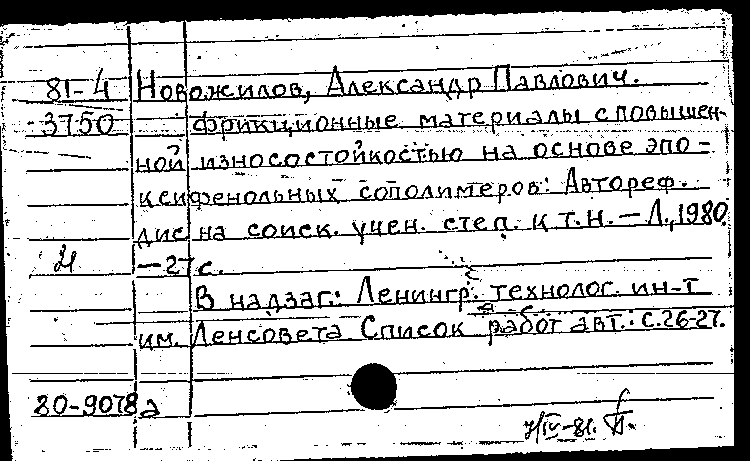 81-4 Новожилов, Александр Павлович.
3750 Фрикционные материалы с повышен-
ной износостойкостью на основе эпо-
ксифенольных сополимеров: Автореф.
дис на соиск. учен. степ. к.т.н. — Л., 1980.
— 27 с.
В надзаг.: Ленингр. технолог. ин-т
им. Ленсовета Список работ авт.: с. 26-27.
80-9078а
7/IV-81.